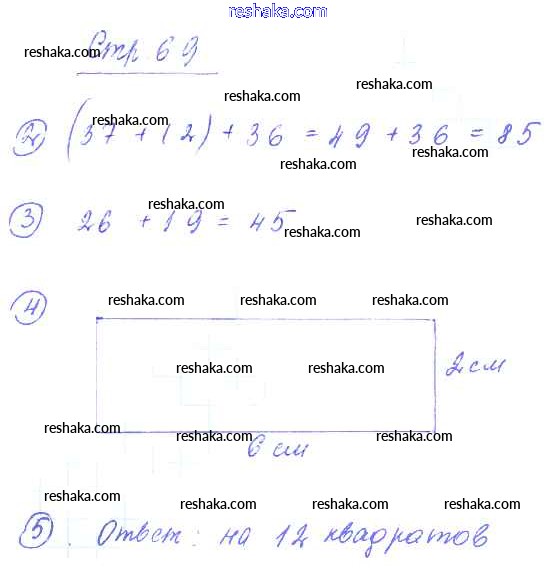 www.reshaka.com
Стр 69
reshaka.com reshaka.com
reshaka.com reshaka.com
② (37 + 12) + 36 = 49 + 36 = 85
reshaka.com reshaka.com
reshaka.com reshaka.com
③ 26 + 19 = 45
reshaka.com
④
reshaka.com reshaka.com reshaka.com
reshaka.com reshaka.com
2 см
reshaka.com reshaka.com reshaka.com
6 см
reshaka.com reshaka.com reshaka.com
reshaka.com reshaka.com reshaka.com reshaka.com
⑤. Ответ: на 12 квадратов